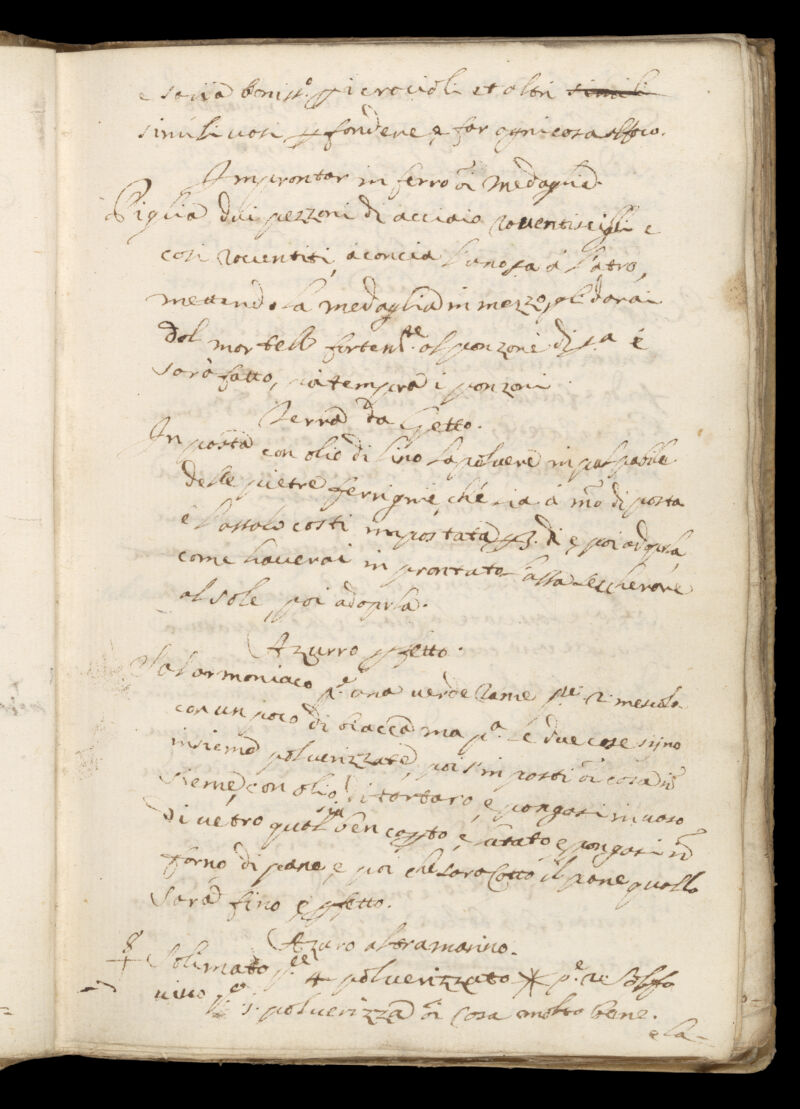 e saria boniss.º p i crocioli et altri simili
simili vasi p fondere e far ogni cosa al foco.
Improntar in ferro oi medaglia.
Piglia dui pezzoni di acciaio roventiscigli e
cosi roventiti, aconcia l'uno sa à l'atro,
mettendo la medaglia in mezzo, gli darai
dol martello fortem.te al ponzone di sa é
sarà fatto, poi tempra i ponzoni
Terra da Getto.
In posta con olio di lino la polvere in palpabile
delle pietre ferrigne, che sia à mo di posta
e lassalo costi impostata p 3. di e poi adopla
come haverai in prontato lassa seccherare
al sole, poi adoprla.
Azurro pfetto.
Sal armoniaco p.e una verde rame p.e 2. mescola
con un poco di biacca ma p.a le due cose sijno
insieme polverizzate, poi s'in posti oi cosa in
sieme, con olio di tartaro, e pongasi in vaso
di vetro qual sia ben copto, é lutato e pongasi in
forno di pane, e poi che sara cotto il pane quello
sarà fino e pfetto.
Azuro altramarino.
Solimato p.e 4 polverizzato p.e 2 solfo
vivo p.e 1. polverizza oi cosa molto bene.
e la-